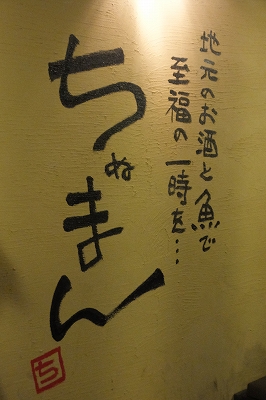 地元のお酒と魚で
至福の一時を…
ちぬまん
ち